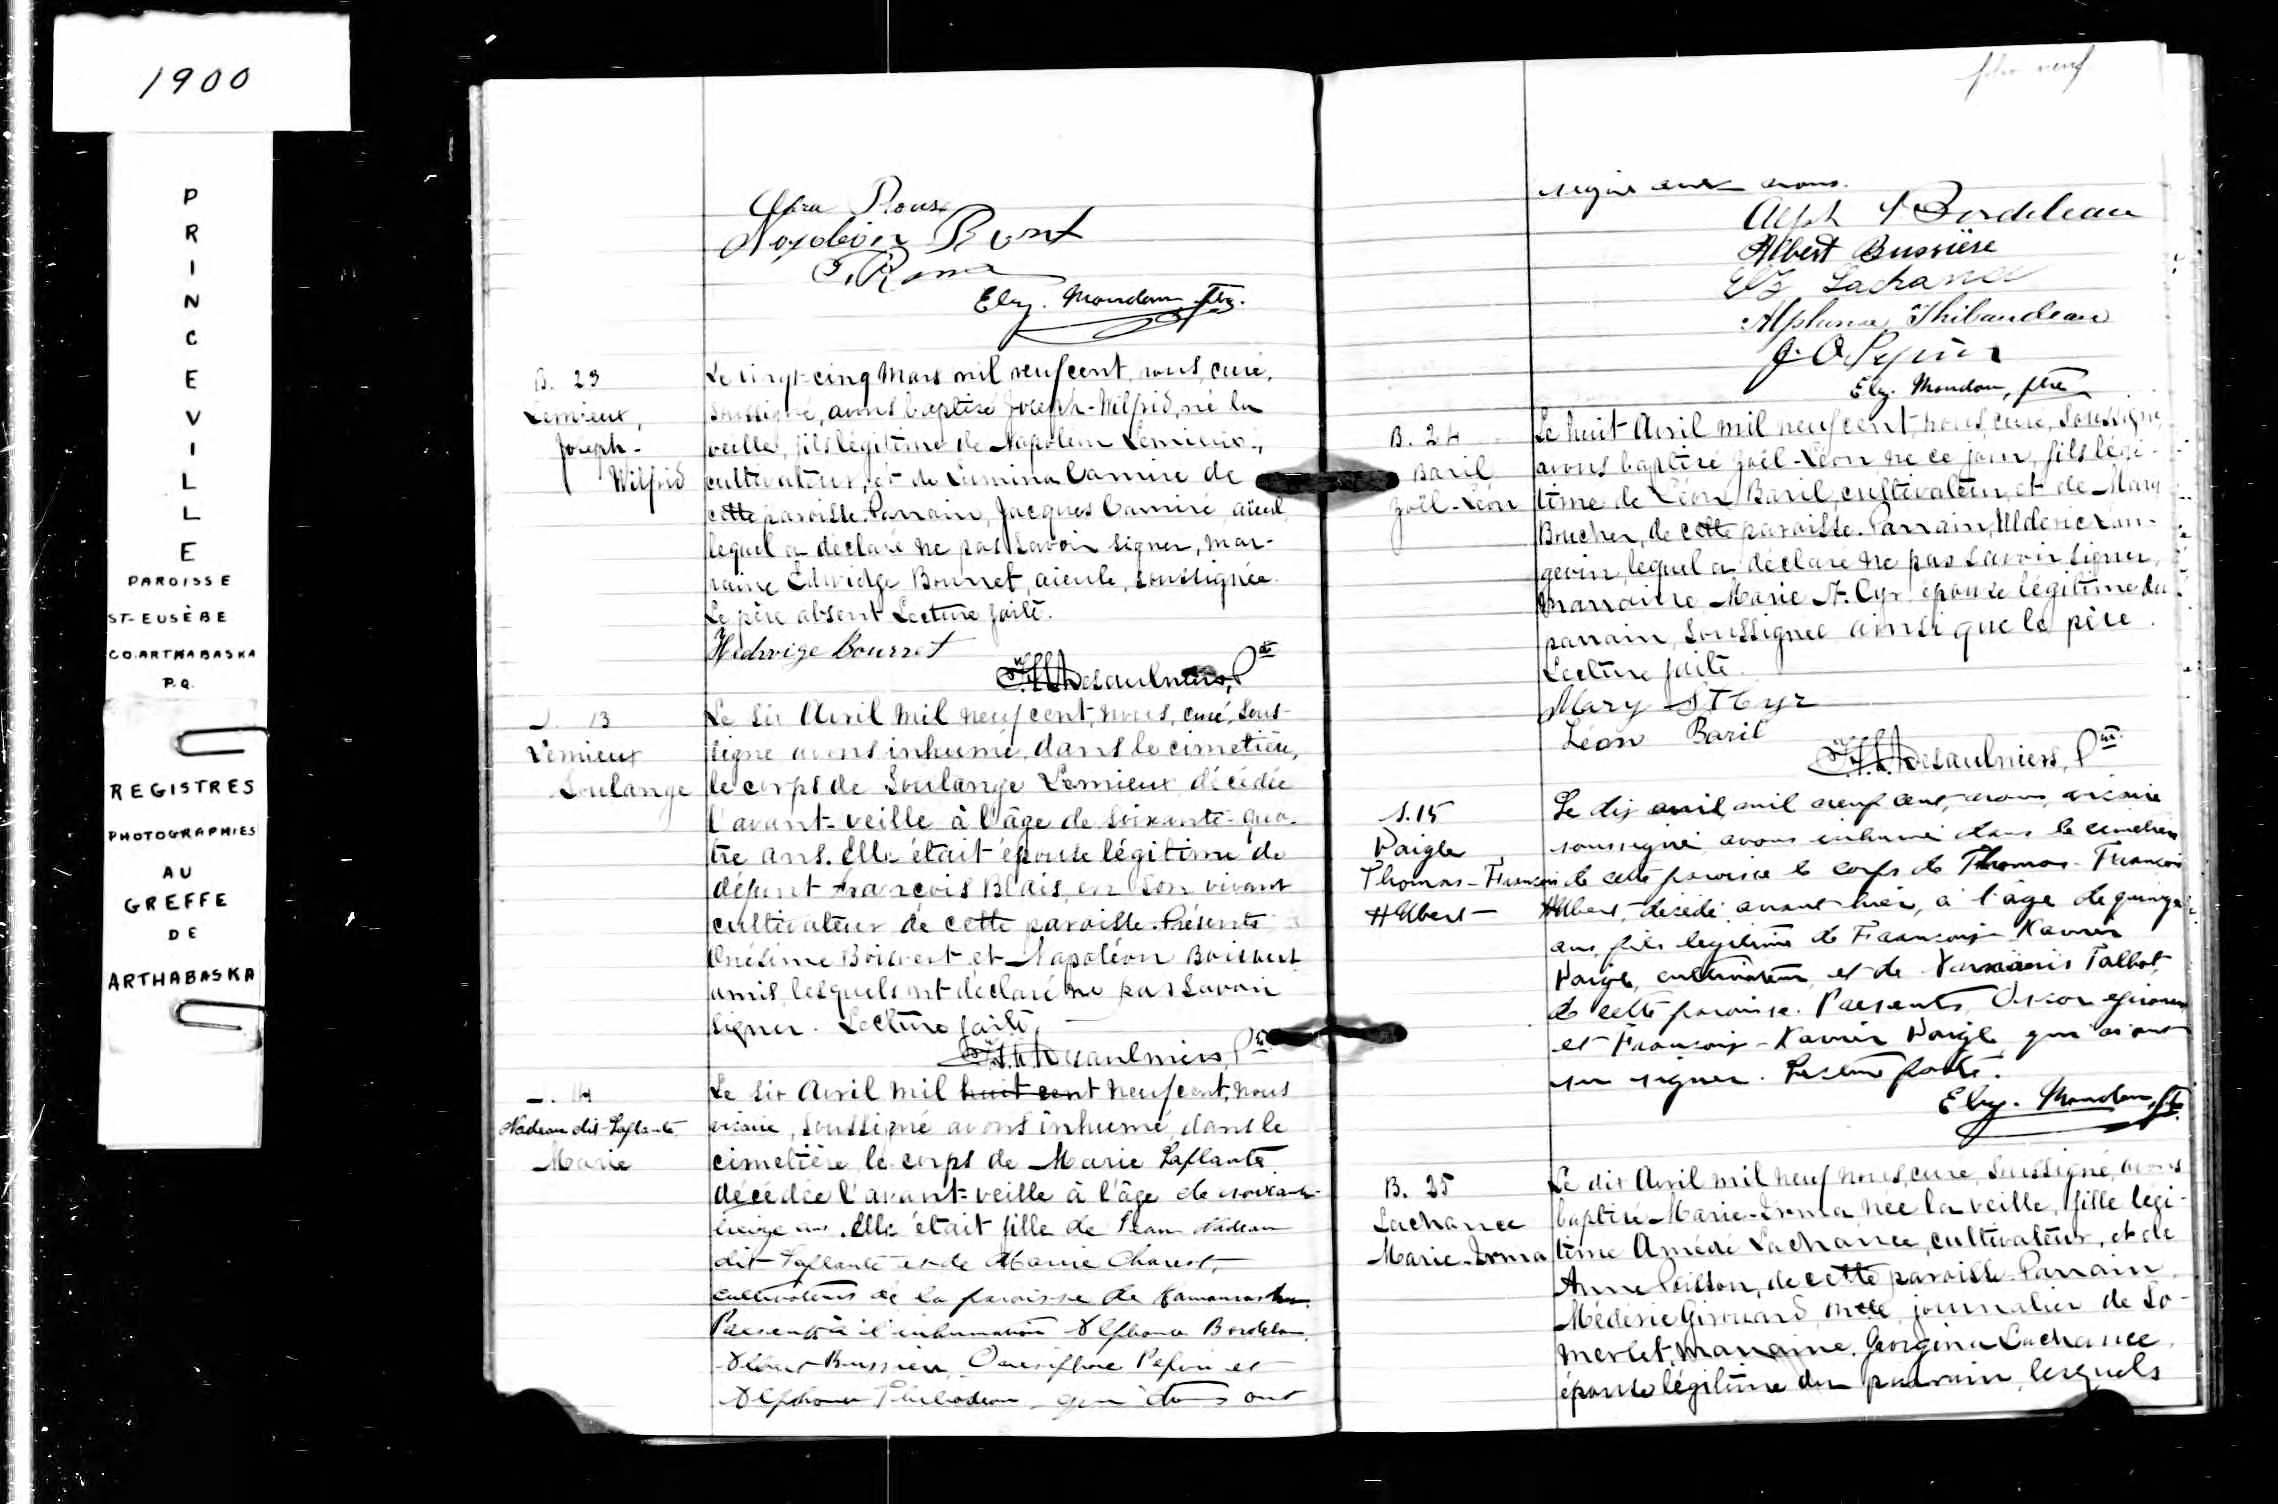 1900
PRINCEVILLE
PAROISSE
ST-EUSÈBE
CO. ARTHABASKA
P.Q.
REGISTRES
PHOTOGRAPHIES
AU
GREFFE
DE
ARTHABASKA
Napoléon
Elz. Mondou ptre.
B. 23
Lemieux,
Joseph-
Wilfrid
Le vingt-cinq Mars mil neuf cent, nous, curé,
soussigné, avons baptisé Joseph-Wilfrid, né la
veille, fils légitime de Napoléon Lemieux,
cultivateur, et de Lumina Camiré de
cette paroisse. Parrain, Jacques Camiré, aïeul,
lequel a déclaré ne pas savoir signer, mar-
raine Edwidge Bourret, aïeule, soussignée.
Le père absent Lecture faite.
Hedwige Bourret
Desaulniers, Ptre
S. 13
Lemieux
Soulange
Le six Avril mil neuf cent, nous, curé, sous-
signé avons inhumé, dans le cimetière,
le corps de Soulange Lemieux décédée
l'avant-veille à l'âge de soixante-qua-
tre ans. Elle était épouse légitime de
défunt François Blais, en son vivant
cultivateur de cette paroisse. Présents
Onésime Boisvert et Napoléon Boisvert
amis, lesquels ont déclaré ne pas savoir
signer. Lecture faite,
Desaulniers, Ptre
S. 14
Nadeau dit Laflante
Marie
Le six Avril mil huit cent neuf cent, nous
vicaire, soussigné avons inhumé, dans le
cimetière le corps de Marie Laflante
décédée l'avant-veille à l'âge de soixante-
ans. Elle était fille de Jean Nadeau
dit Laflante et de Marie Charest,
cultivateurs de la paroisse de Kamouraska.
Présents à l'inhumation Alphonse Bordeleau,
Albert Bussière, Onésiphore Pepin et
Alphonse Thibodeau qui tous ont
folio neuf
signé avec nous.
Alph Bordeleau
Albert Bussière
Elz Lachance
Alphonse Thibaudeau
J. O Pepin
Elz. Mondou, ptre
B. 24
Baril
Joël-Léon
Le huit Avril mil neuf cent, nous, curé, soussigné,
avons baptisé Joël-Léon, né ce jour, fils légi-
time de Léon Baril, cultivateur, et de Mary
Boucher, de cette paroisse. Parrain, Uldéric Lan-
gevin, lequel a déclaré ne pas savoir signer,
marraine Marie St. Cyr épouse légitime du
parrain, soussignée ainsi que le père.
Lecture faite.
Mary St Cyr
Léon Baril
Desaulniers, Ptre
S. 15
Daigle
Thomas-François
Albert
Le dix avril mil neuf cent, nous, vicaire
soussigné avons inhumé dans le cimetière
de cette paroisse le corps de Thomas-François
Albert, décédé avant hier, à l'âge de quinze
ans fils légitime de François Xavier
Daigle, cultivateur, et de Talbot
de cette paroisse. Présents, Oscar
et François-Xavier Daigle qui n'ont
su signer. Lecture faite.
Elz. Mondou, ptre
B. 25
Lachance
Marie-Irma
Le dix Avril mil neuf nous, curé, soussigné, avons
baptisé Marie-Irma, née la veille, fille légi-
time Amédé Lachance, cultivateur, et de
Anne Poisson, de cette paroisse. Parrain
Médéric Girouard, oncle, journalier de So-
merset, marraine, Georgina Lachance,
épouse légitime du parrain, lesquels